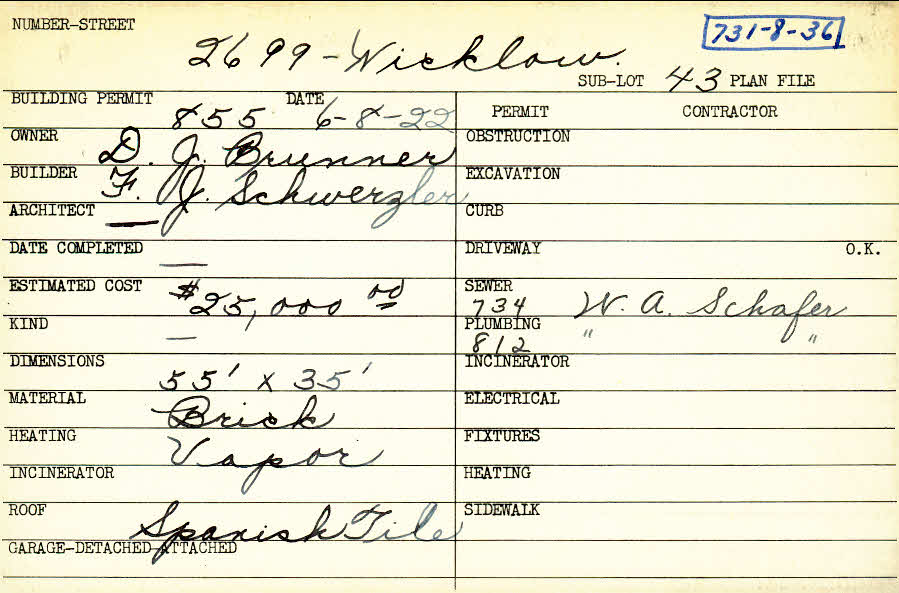 NUMBER-STREET
731-8-36
2699-Wicklow.
SUB-LOT 43 PLAN FILE
BUILDING PERMIT 855 DATE 6-8-22
PERMIT CONTRACTOR
OWNER D. J. Brunner
OBSTRUCTION
BUILDER F. J. Schwerzler
EXCAVATION
ARCHITECT —
CURB
DATE COMPLETED —
DRIVEWAY O.K.
ESTIMATED COST $25,000 00
SEWER 734 W. A. Schafer
KIND —
PLUMBING 812 " "
DIMENSIONS 55' x 35'
INCINERATOR
MATERIAL Brick
ELECTRICAL
HEATING Vapor
FIXTURES
INCINERATOR
HEATING
ROOF Spanish Tile
SIDEWALK
GARAGE-DETACHED-ATTACHED